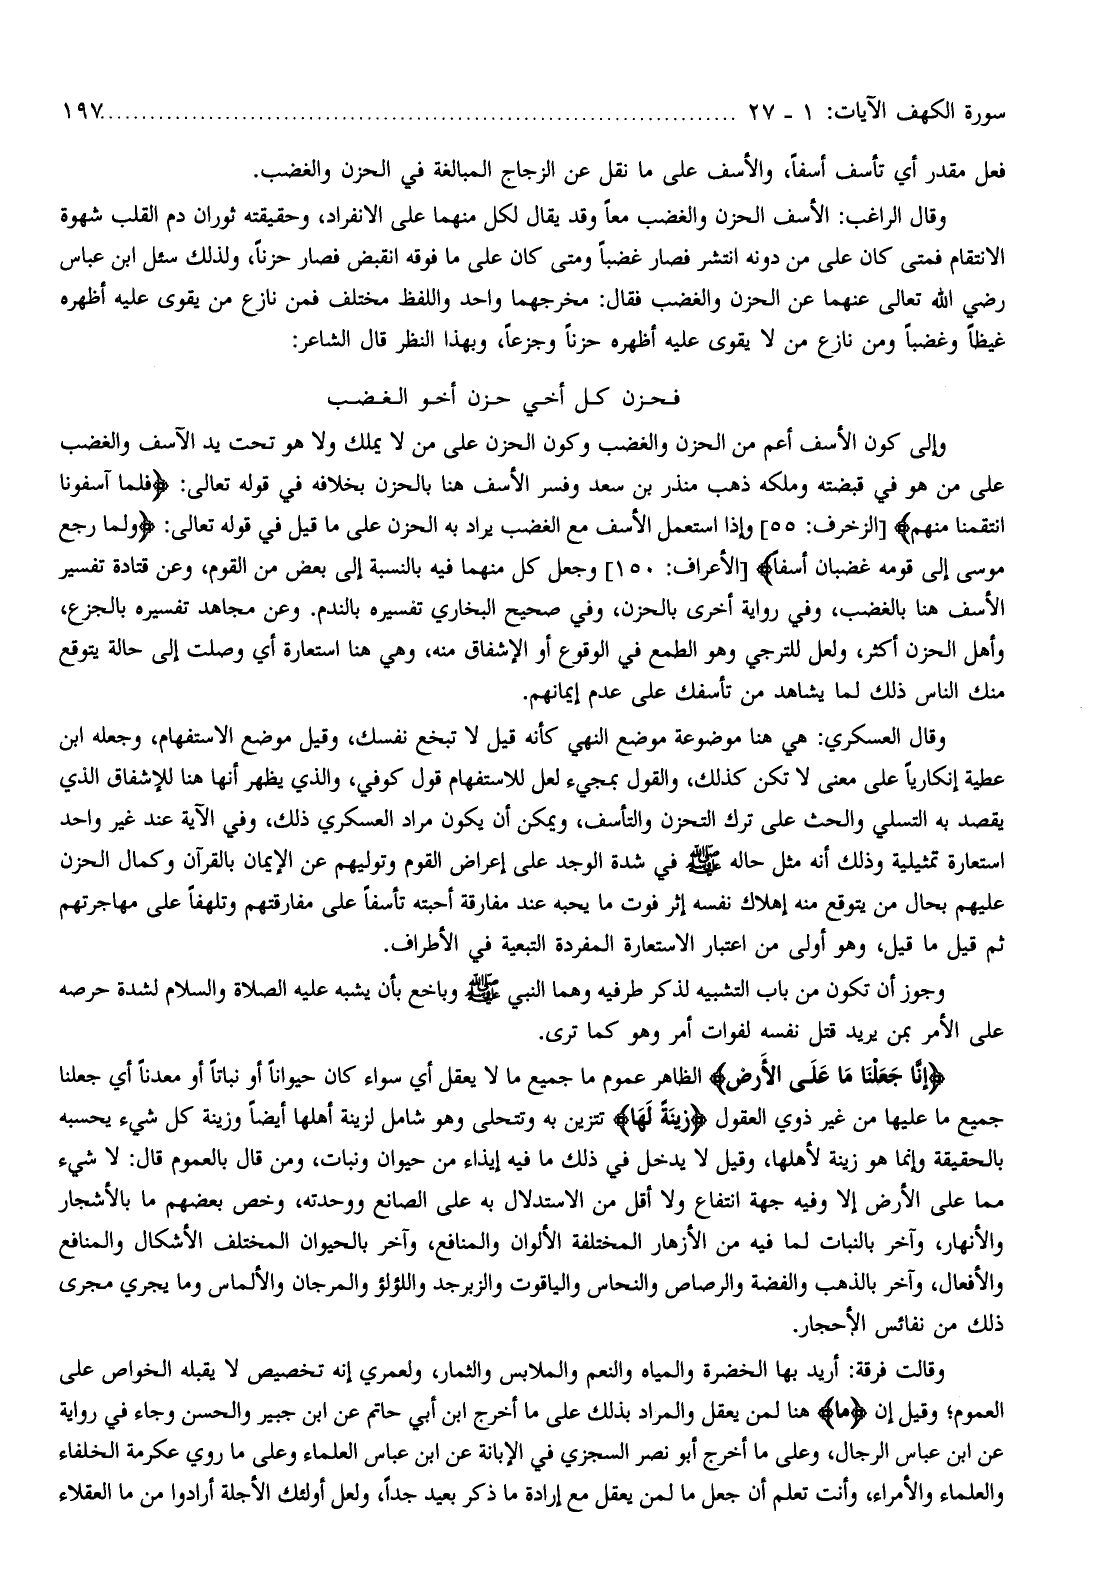 سورة الكهف الآيات: ١ ـ ٢٧ ........................................................................ ١٩٧
فعل مقدر أي تأسف أسفاً، والأسف على ما نقل عن الزجاج المبالغة في الحزن والغضب.
وقال الراغب: الأسف الحزن والغضب معاً وقد يقال لكل منهما على الانفراد، وحقيقته ثوران دم القلب شهوة
الانتقام فمتى كان على من دونه انتشر فصار غضباً ومتى كان على ما فوقه انقبض فصار حزناً، ولذلك سئل ابن عباس
رضي الله تعالى عنهما عن الحزن والغضب فقال: مخرجهما واحد واللفظ مختلف فمن نازع من يقوى عليه أظهره
غيظاً وغضباً ومن نازع من لا يقوى عليه أظهره حزناً وجزعاً، وبهذا النظر قال الشاعر:
فحزن كل أخي حزن أخو الغضب
وإلى كون الأسف أعم من الحزن والغضب وكون الحزن على من لا يملك ولا هو تحت يد الآسف والغضب
على من هو في قبضته وملكه ذهب منذر بن سعد وفسر الأسف هنا بالحزن بخلافه في قوله تعالى: ﴿فلما آسفونا
انتقمنا منهم﴾ [الزخرف: ٥٥] وإذا استعمل الأسف مع الغضب يراد به الحزن على ما قيل في قوله تعالى: ﴿ولما رجع
موسى إلى قومه غضبان أسفاً﴾ [الأعراف: ١٥٠] وجعل كل منهما فيه بالنسبة إلى بعض من القوم، وعن قتادة تفسير
الأسف هنا بالغضب، وفي رواية أخرى بالحزن، وفي صحيح البخاري تفسيره بالندم. وعن مجاهد تفسيره بالجزع،
وأهل الحزن أكثر، ولعل للترجي وهو الطمع في الوقوع أو الإشفاق منه، وهي هنا استعارة أي وصلت إلى حالة يتوقع
منك الناس ذلك لما يشاهد من تأسفك على عدم إيمانهم.
وقال العسكري: هي هنا موضوعة موضع النهي كأنه قيل لا تبخع نفسك، وقيل موضع الاستفهام، وجعله ابن
عطية إنكارياً على معنى لا تكن كذلك، والقول بمجيء لعل للاستفهام قول كوفي، والذي يظهر أنها هنا للإشفاق الذي
يقصد به التسلي والحث على ترك التحزن والتأسف، ويمكن أن يكون مراد العسكري ذلك، وفي الآية عند غير واحد
استعارة تمثيلية وذلك أنه مثل حاله ﷺ في شدة الوجد على إعراض القوم وتوليهم عن الإيمان بالقرآن وكمال الحزن
عليهم بحال من يتوقع منه إهلاك نفسه إثر فوت ما يحبه عند مفارقة أحبته تأسفاً على مفارقتهم وتلهفاً على مهاجرتهم
ثم قيل ما قيل، وهو أولى من اعتبار الاستعارة المفردة التبعية في الأطراف.
وجوز أن تكون من باب التشبيه لذكر طرفيه وهما النبي ﷺ وباخع بأن يشبه عليه الصلاة والسلام لشدة حرصه
على الأمر بمن يريد قتل نفسه لفوات أمر وهو كما ترى.
﴿إِنَّا جَعَلْنَا مَا عَلَى الأَرض﴾ الظاهر عموم ما جميع ما لا يعقل أي سواء كان حيواناً أو نباتاً أو معدناً أي جعلنا
جميع ما عليها من غير ذوي العقول ﴿زينَةً لَهَا﴾ تتزين به وتتحلى وهو شامل لزينة أهلها أيضاً وزينة كل شيء يحسبه
بالحقيقة وإنما هو زينة لأهلها، وقيل لا يدخل في ذلك ما فيه إيذاء من حيوان ونبات، ومن قال بالعموم قال: لا شيء
مما على الأرض إلا وفيه جهة انتفاع ولا أقل من الاستدلال به على الصانع ووحدته، وخص بعضهم ما بالأشجار
والأنهار، وآخر بالنبات لما فيه من الأزهار المختلفة الألوان والمنافع، وآخر بالحيوان المختلف الأشكال والمنافع
والأفعال، وآخر بالذهب والفضة والرصاص والنحاس والياقوت والزبرجد واللؤلؤ والمرجان والألماس وما يجري مجرى
ذلك من نفائس الأحجار.
وقالت فرقة: أريد بها الخضرة والمياه والنعم والملابس والثمار، ولعمري إنه تخصيص لا يقبله الخواص على
العموم؛ وقيل إن ﴿ما﴾ هنا لمن يعقل والمراد بذلك على ما أخرج ابن أبي حاتم عن ابن جبير والحسن وجاء في رواية
عن ابن عباس الرجال، وعلى ما أخرج أبو نصر السجزي في الإبانة عن ابن عباس العلماء وعلى ما روي عكرمة الخلفاء
والعلماء والأمراء، وأنت تعلم أن جعل ما لمن يعقل مع إرادة ما ذكر بعيد جداً، ولعل أولئك الأجلة أرادوا من ما العقلاء